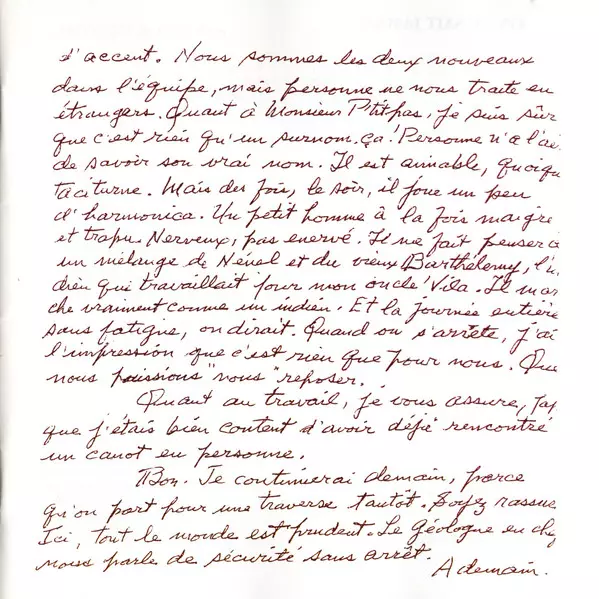 d'accent. Nous sommes les deux nouveaux
dans l'équipe, mais personne ne nous traite en
étrangers. Quant à Monsieur Ptitpas, je suis sûr
que c'est rien qu'un surnom, ça! Personne n'a l'ai
de savoir son vrai nom. Il est aimable, quoiqu
taciturne. Mais des fois, le soir, il joue un peu
d'harmonica. Un petit homme à la fois maigre
et trapu. Nerveux, pas énervé. Il me fait penser à
un mélange de Nénel et du vieux Barthélemy, l'in
dien qui travaillait pour mon oncle Vila. Il mar
che vraiment comme un indien. Et la journée entière
sans fatigue, on dirait. Quand on s'arrête, j'ai
l'impression que c'est rien que pour nous. Que
nous puissions "nous" reposer.
Quant au travail, je vous assure, Pap
que j'étais bien content d'avoir déjà rencontré
un canot en personne.
Bon. Je continuerai demain, parce
qu'on part pour une traverse tantôt. Soyez rassuré
Ici, tout le monde est prudent. Le Géologue en che
nous parle de sécurité sans arrêt.
A demain.